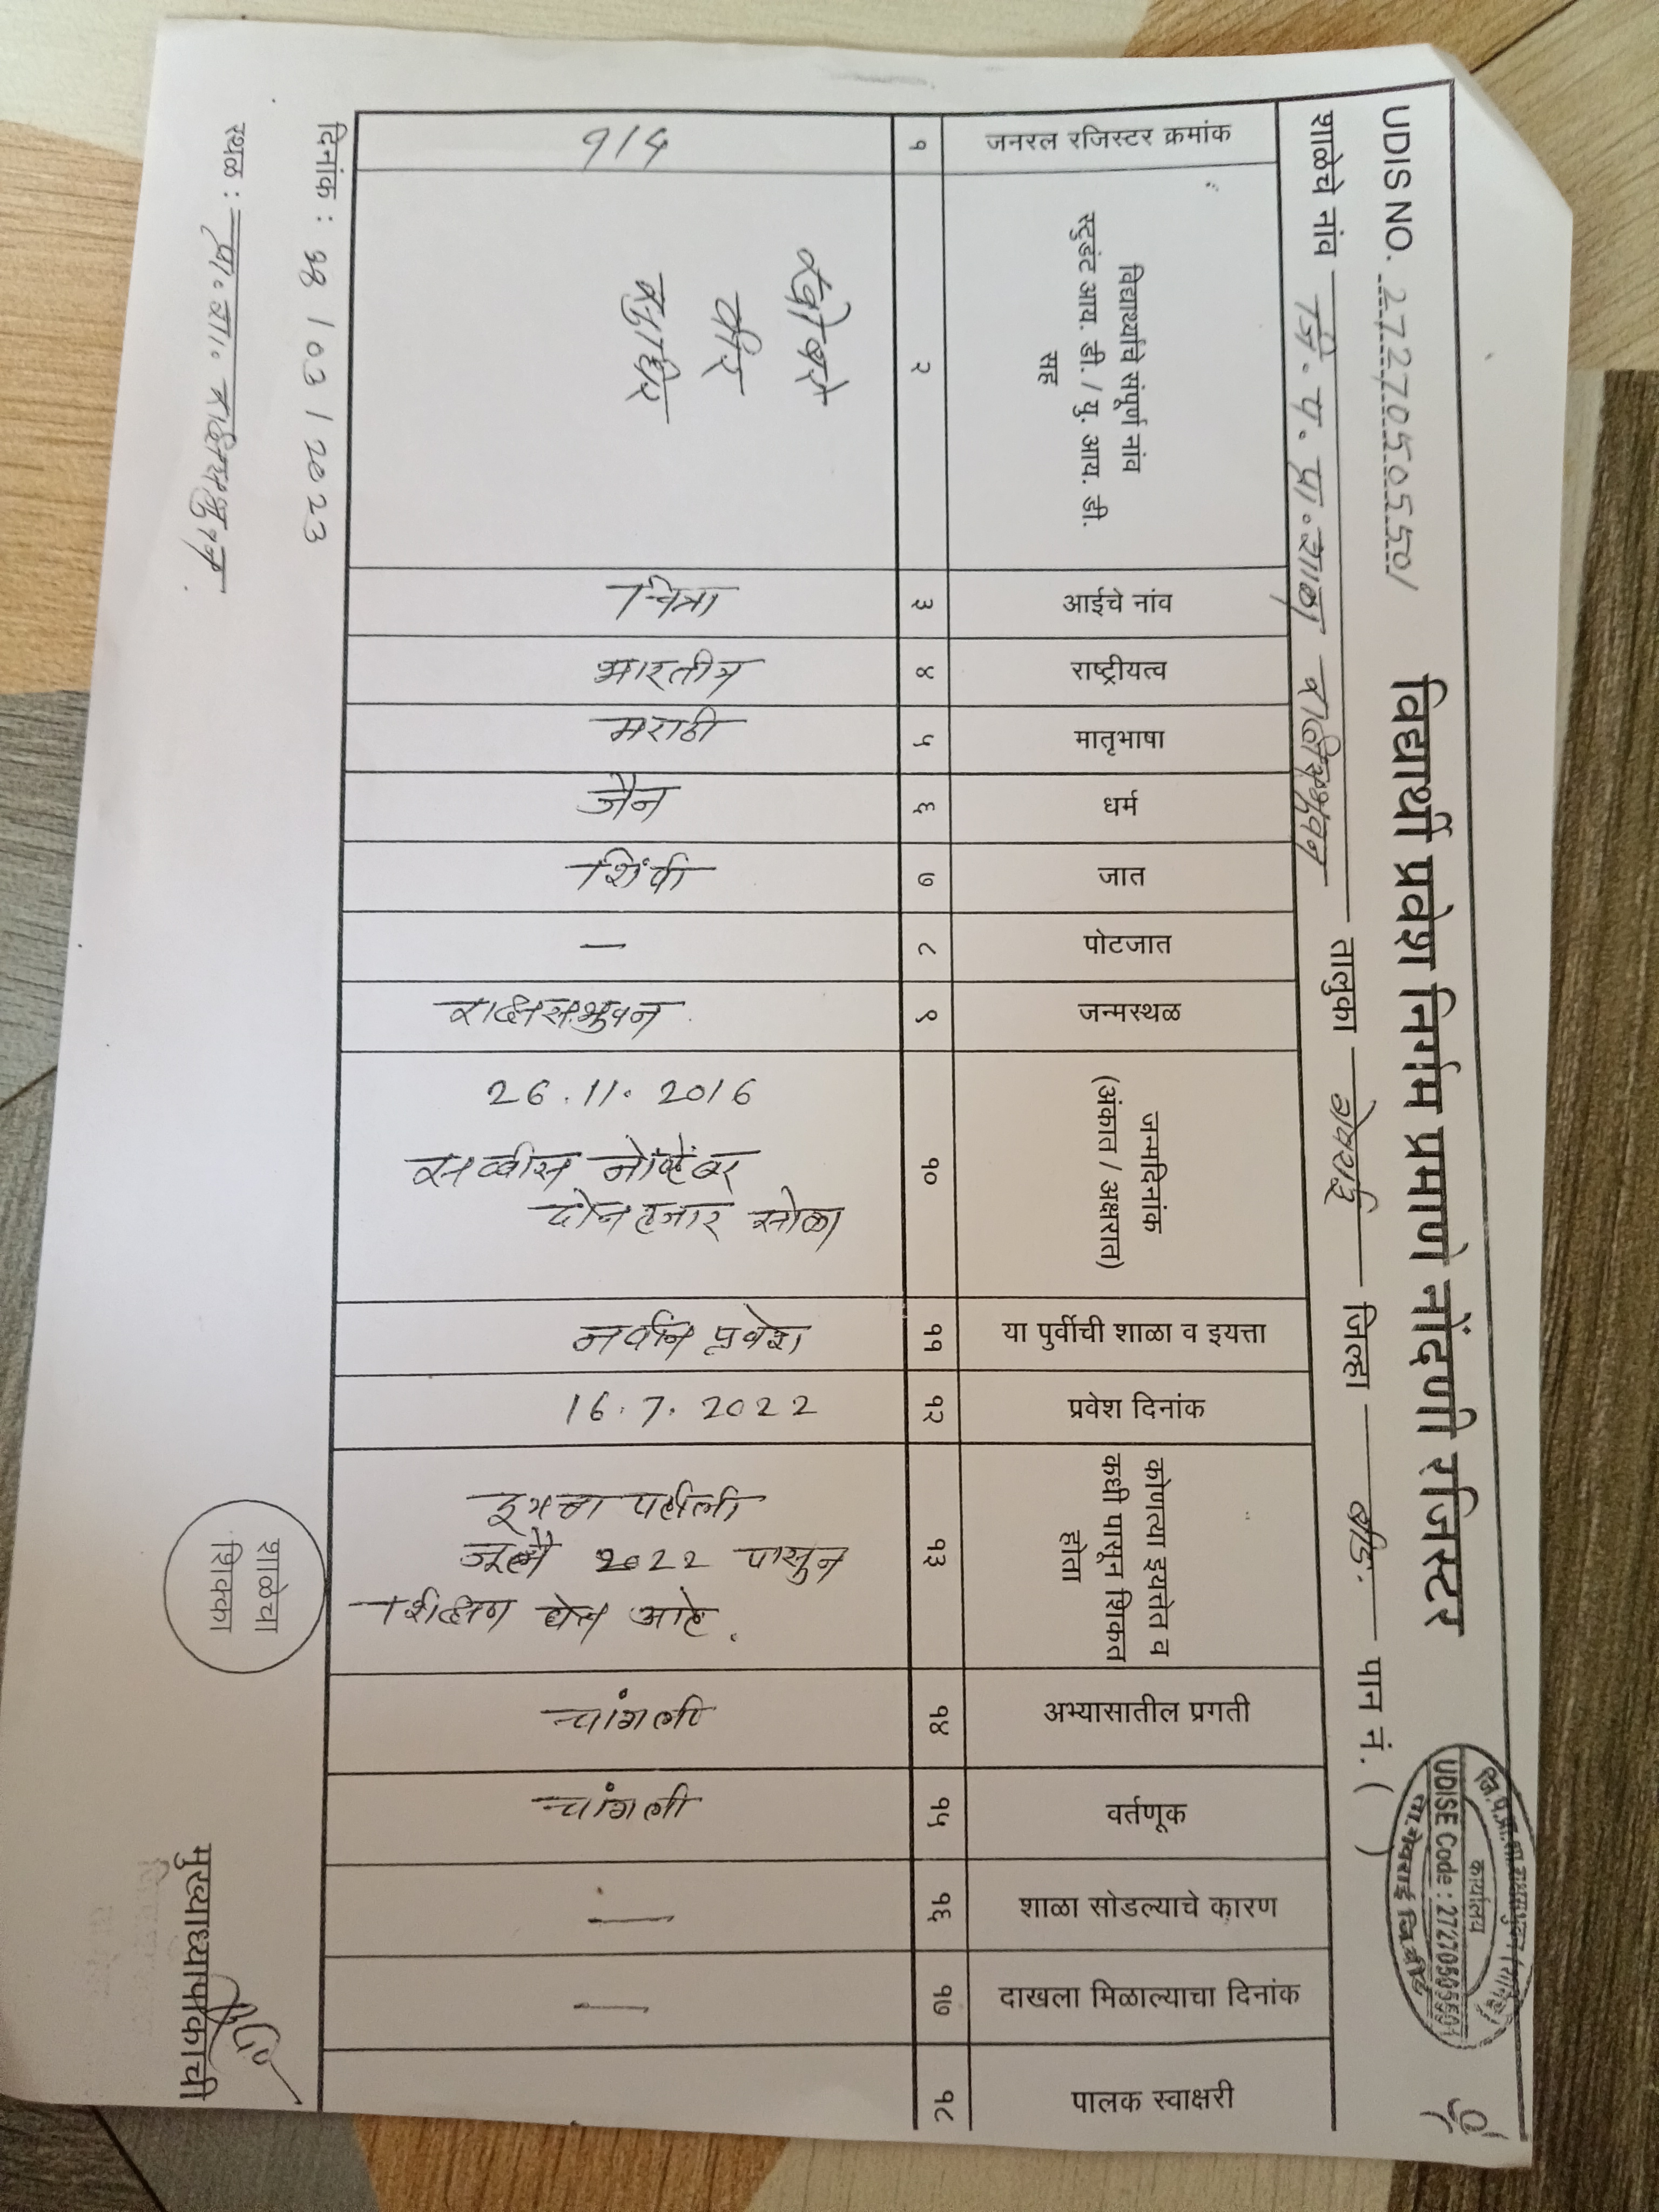 UDIS NO. 27270505501
विद्यार्थी प्रवेश निर्गम प्रमाणे नोंदणी रजिस्टर
जि.प.प्रा.शा. राक्षसभुवन
कार्यालय
UDISE Code : 27270505501
ता.गेवराई जि.बीड
शाळेचे नांव जि. प. प्रा. शाळा राक्षसभुवन तालुका गेवराई जिल्हा बीड. पान नं. ( )
जनरल रजिस्टर क्रमांक
विद्यार्थ्याचे संपूर्ण नांव
स्टुडंट आय. डी. / यु. आय. डी.
सह
आईचे नांव
राष्ट्रीयत्व
मातृभाषा
धर्म
जात
पोटजात
जन्मस्थळ
जन्मदिनांक
(अंकात / अक्षरात)
या पुर्वीची शाळा व इयत्ता
प्रवेश दिनांक
कोणत्या इयत्तेत व
कधी पासून शिकत
होता
अभ्यासातील प्रगती
वर्तणूक
शाळा सोडल्याचे कारण
दाखला मिळाल्याचा दिनांक
पालक स्वाक्षरी
१ २ ३ ४ ५ ६ ७ ८ ९ १० ११ १२ १३ १४ १५ १६ १७ १८
वीर
चित्रा
भारतीय
मराठी
जैन
शिंपी
—
राक्षसभुवन
26.11.2016
सव्वीस नोव्हेंबर
दोन हजार सोळा
नवीन प्रवेश
16.7.2022
इयत्ता पहीली
जूलै 2022 पासुन
शिक्षण घेत आहे.
चांगली
चांगली
—
—
दिनांक : / 03 / 2023
स्थळ : प्रा. शा. राक्षसभुवन
शाळेचा
शिक्का
मुख्याध्यापकांची